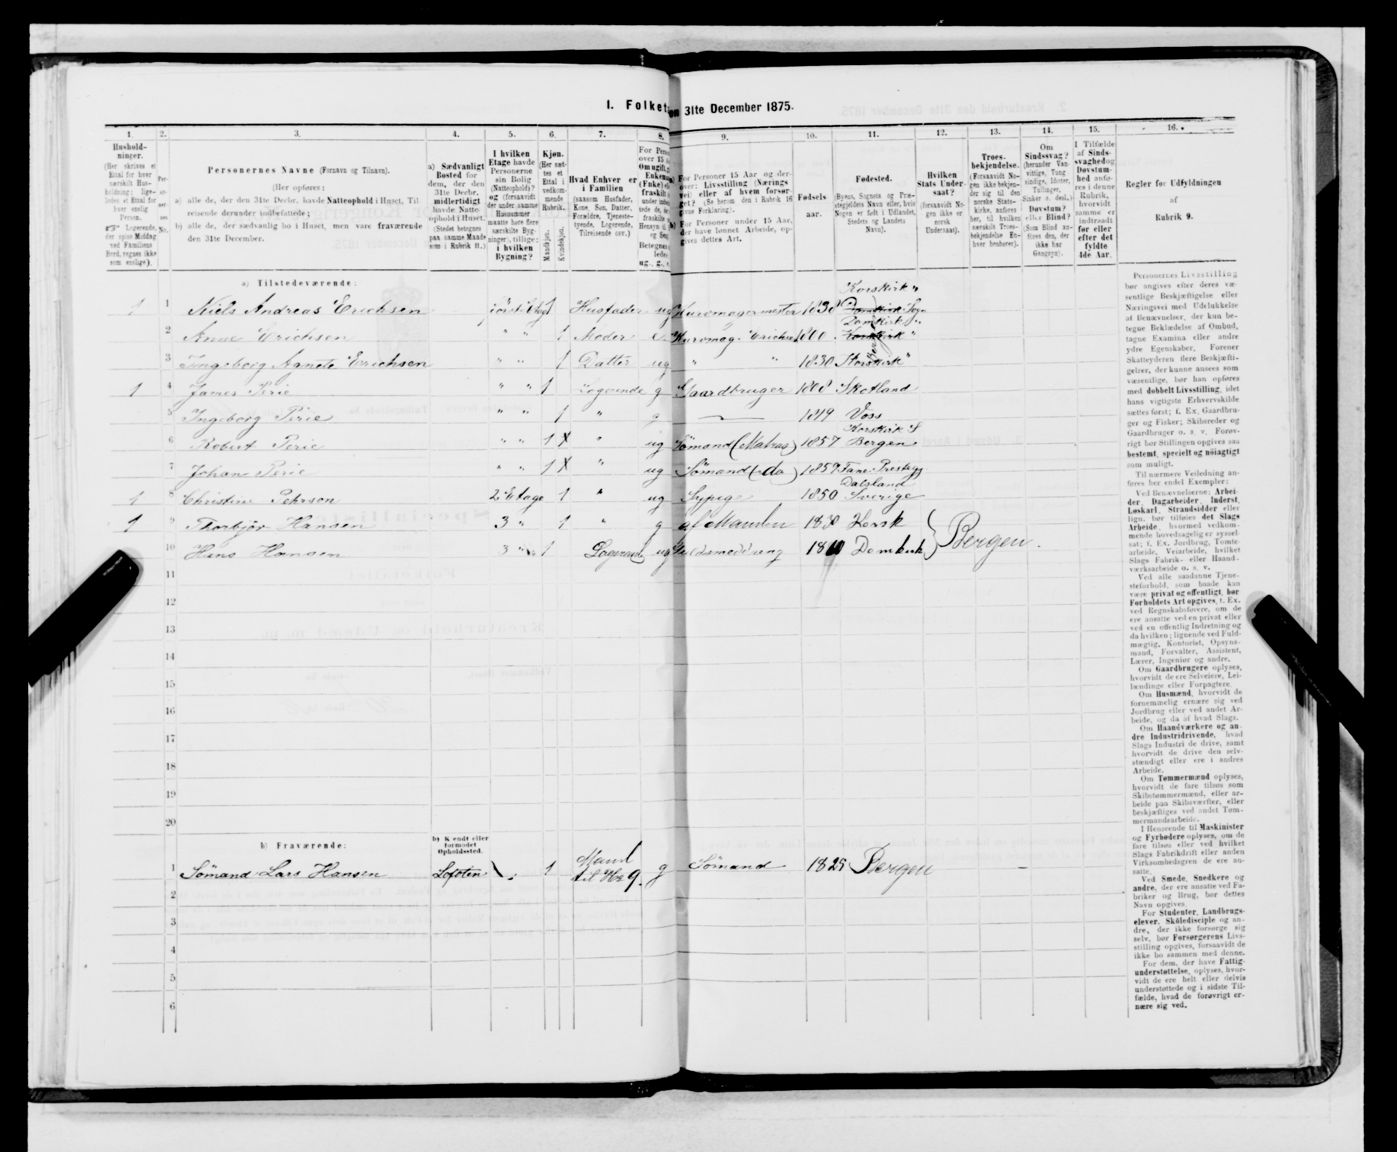 1. Folket
31te December 1875.
1. 2. 3. 4. 5. 6. 7. 8. 9. 10. 11. 12. 13. 14. 15. 16.
Hushold-
ninger.
Personernes Navne (Fornavn og Tilnavn).
(Her opføres:
a) alle de, der den 31te Decbr. havde Natteophold i Huset, Til
reisende derunder indbefattede;
b) alle de, der sædvanlig bo i Huset, men vare fraværende
den 31te December.
a) Sædvanligt
Bosted for
dem, der den
31te Decbr.
midlertidigt
havde Natte-
ophold i Huset.
I hvilken
Etage havde
Personerne
sin Bolig
(Natteophold)?
i hvilken
Bygning?
Kjøn.
Mandkjøn.
Kvindekjøn.
Hvad Enhver er
i Familien
(saasom Husfader,
Kone, Søn, Datter,
Forældre, Tjeneste-
tyende, Logerende,
Tilreisende osv.)
Fødsels
aar.
Fødested.
(Byens, Sognets og Præ-
stegjeldets Navn eller, hvis
Nogen er født i Udlandet,
Stedets og Landets
Navn).
Hvilken
Stats Under-
saat?
(forsaavidt No-
gen ikke er
norsk
Undersaat).
Troes-
bekjendelse.
Om
Sindssvag?
Døvstum?
eller Blind?
I Tilfælde
af Sinds-
svaghed og
Døvstum-
hed anfø-
res i denne
Rubrik,
hvorvidt
samme er
indtraadt
før eller
efter det
fyldte
4de Aar.
Regler for Udfyldningen
af
Rubrik 9.
a) Tilstedeværende:
Korskirk "
1 1 Niels Andreas Erichsen 1 Husfader ug 1830 Domkirk Sogn
Domkirk S "
2 Anne Erichsen " " 1 Moder 1800 Korskirk "
3 Ingeborg Agnete Erichsen " " 1 Datter ug " " 1830 Korskirk "
1 4 James Pirie " " 1 Logerende g Gaardbruger Skotland
5 Ingeborg Pirie " " 1 " g — 1819 Voss
Korskirk S
6 Robert Pirie " " 1 X " ug Sømand (Matros) 1857 Bergen
7 Johan Pirie " " 1 X " ug Sømand (do) 1859 Fane Prestegj
Dalsland
1 8 Christine Pehrson 2 Etage 1 " ug Sypige 1850 Sverige
1 9 Thorbjør Hansen 3 " 1 " g af Manden 1830 Korsk
10 Hans Hansen 3 " 1 Logerend ug Domkirk } Bergen.
11
12
13
14
15
16
17
18
19
20
b) Fraværende:
b) Kjendt eller
formodet
Opholdssted.
1 Sømand Lars Hansen Lofoten 1 Mand til No 9. g Sømand 1825 Bergen —
2
3
4
5
6
Personernes Livsstilling
bør angives efter deres væ-
sentlige Beskjæftigelse eller
Næringsvei med Udelukkelse
af Benævnelser, der kun be-
tegne Beklædelse af Ombud,
tagne Examina eller andre
ydre Egenskaber. Forener
Skatteyderen flere Beskjæfti-
gelser, der kunne ansees som
væsentlige, bør han opføres
med dobbelt Livsstilling, idet
hans vigtigste Erhvervskilde
sættes først; f. Ex. Gaardbru-
ger og Fisker; Skibsreder og
Gaardbruger o. s. v. Forøv-
rigt bør Stillingen opgives saa
bestemt, specielt og nøiagtigt
som muligt.
Til nærmere Veiledning an-
føres her endel Exempler:
Ved Benævnelserne: Arbei-
der, Dagarbeider, Inderst,
Løskarl, Strandsidder eller
lign. bør tilføies det Slags
Arbeide, hvormed vedkom-
mende hovedsagelig er syssel-
sat; f. Ex. Jordbrug, Tomte-
arbeide, Veiarbeide, hvilket
Slags Fabrik- eller Haand-
værksarbeide o. s. v.
Ved alle saadanne Tjene-
steforhold, som baade kan
være privat og offentligt, bør
Forholdets Art opgives, t. Ex.
ved Regnskabsførere, om de
ere ansatte ved en privat eller
ved en offentlig Indretning og
da hvilken; lignende ved Fuld-
mægtig, Kontorist, Opsyns-
mand, Forvalter, Assistent,
Lærer, Ingeniør og andre.
Om Gaardbrugere oplyses,
hvorvidt de ere Selveiere, Lei-
lændinge eller Forpagtere.
Om Husmænd, hvorvidt de
fornemmelig ernære sig ved
Jordbrug eller ved andet Ar-
beide, og da af hvad Slags.
Om Haandværkere og an-
dre Industridrivende, hvad
Slags Industri de drive, samt
hvorvidt de drive den selv-
stændigt eller ere i andres
Arbeide.
Om Tømmermænd oplyses,
hvorvidt de fare tilsøs som
Skibstømmermænd, eller ar-
beide paa Skibsværfter, eller
beskjæftiges ved andet Tøm-
mermandsarbeide.
I Henseende til Maskinister
og Fyrbødere oplyses, om de
fare tilsøs eller ved hvilket
Slags Fabrikdrift eller anden
Virksomhedsgren de ere an-
satte.
Ved Smede, Snedkere og
andre, der ere ansatte ved Fa-
briker og Brug, bør dettes
Navn opgives.
For Studenter, Landbrugs-
elever, Skoledisciple og an-
dre, der ikke forsørge sig
selv, bør Forsørgerens Livs-
stilling opgives, forsaavidt de
ikke bo sammen med denne.
For dem, der have Fattig-
understøttelse, oplyses, hvor-
vidt de ere helt eller delvis
understøttede og i sidste Til-
fælde, hvad de forøvrigt er-
nære sig ved.